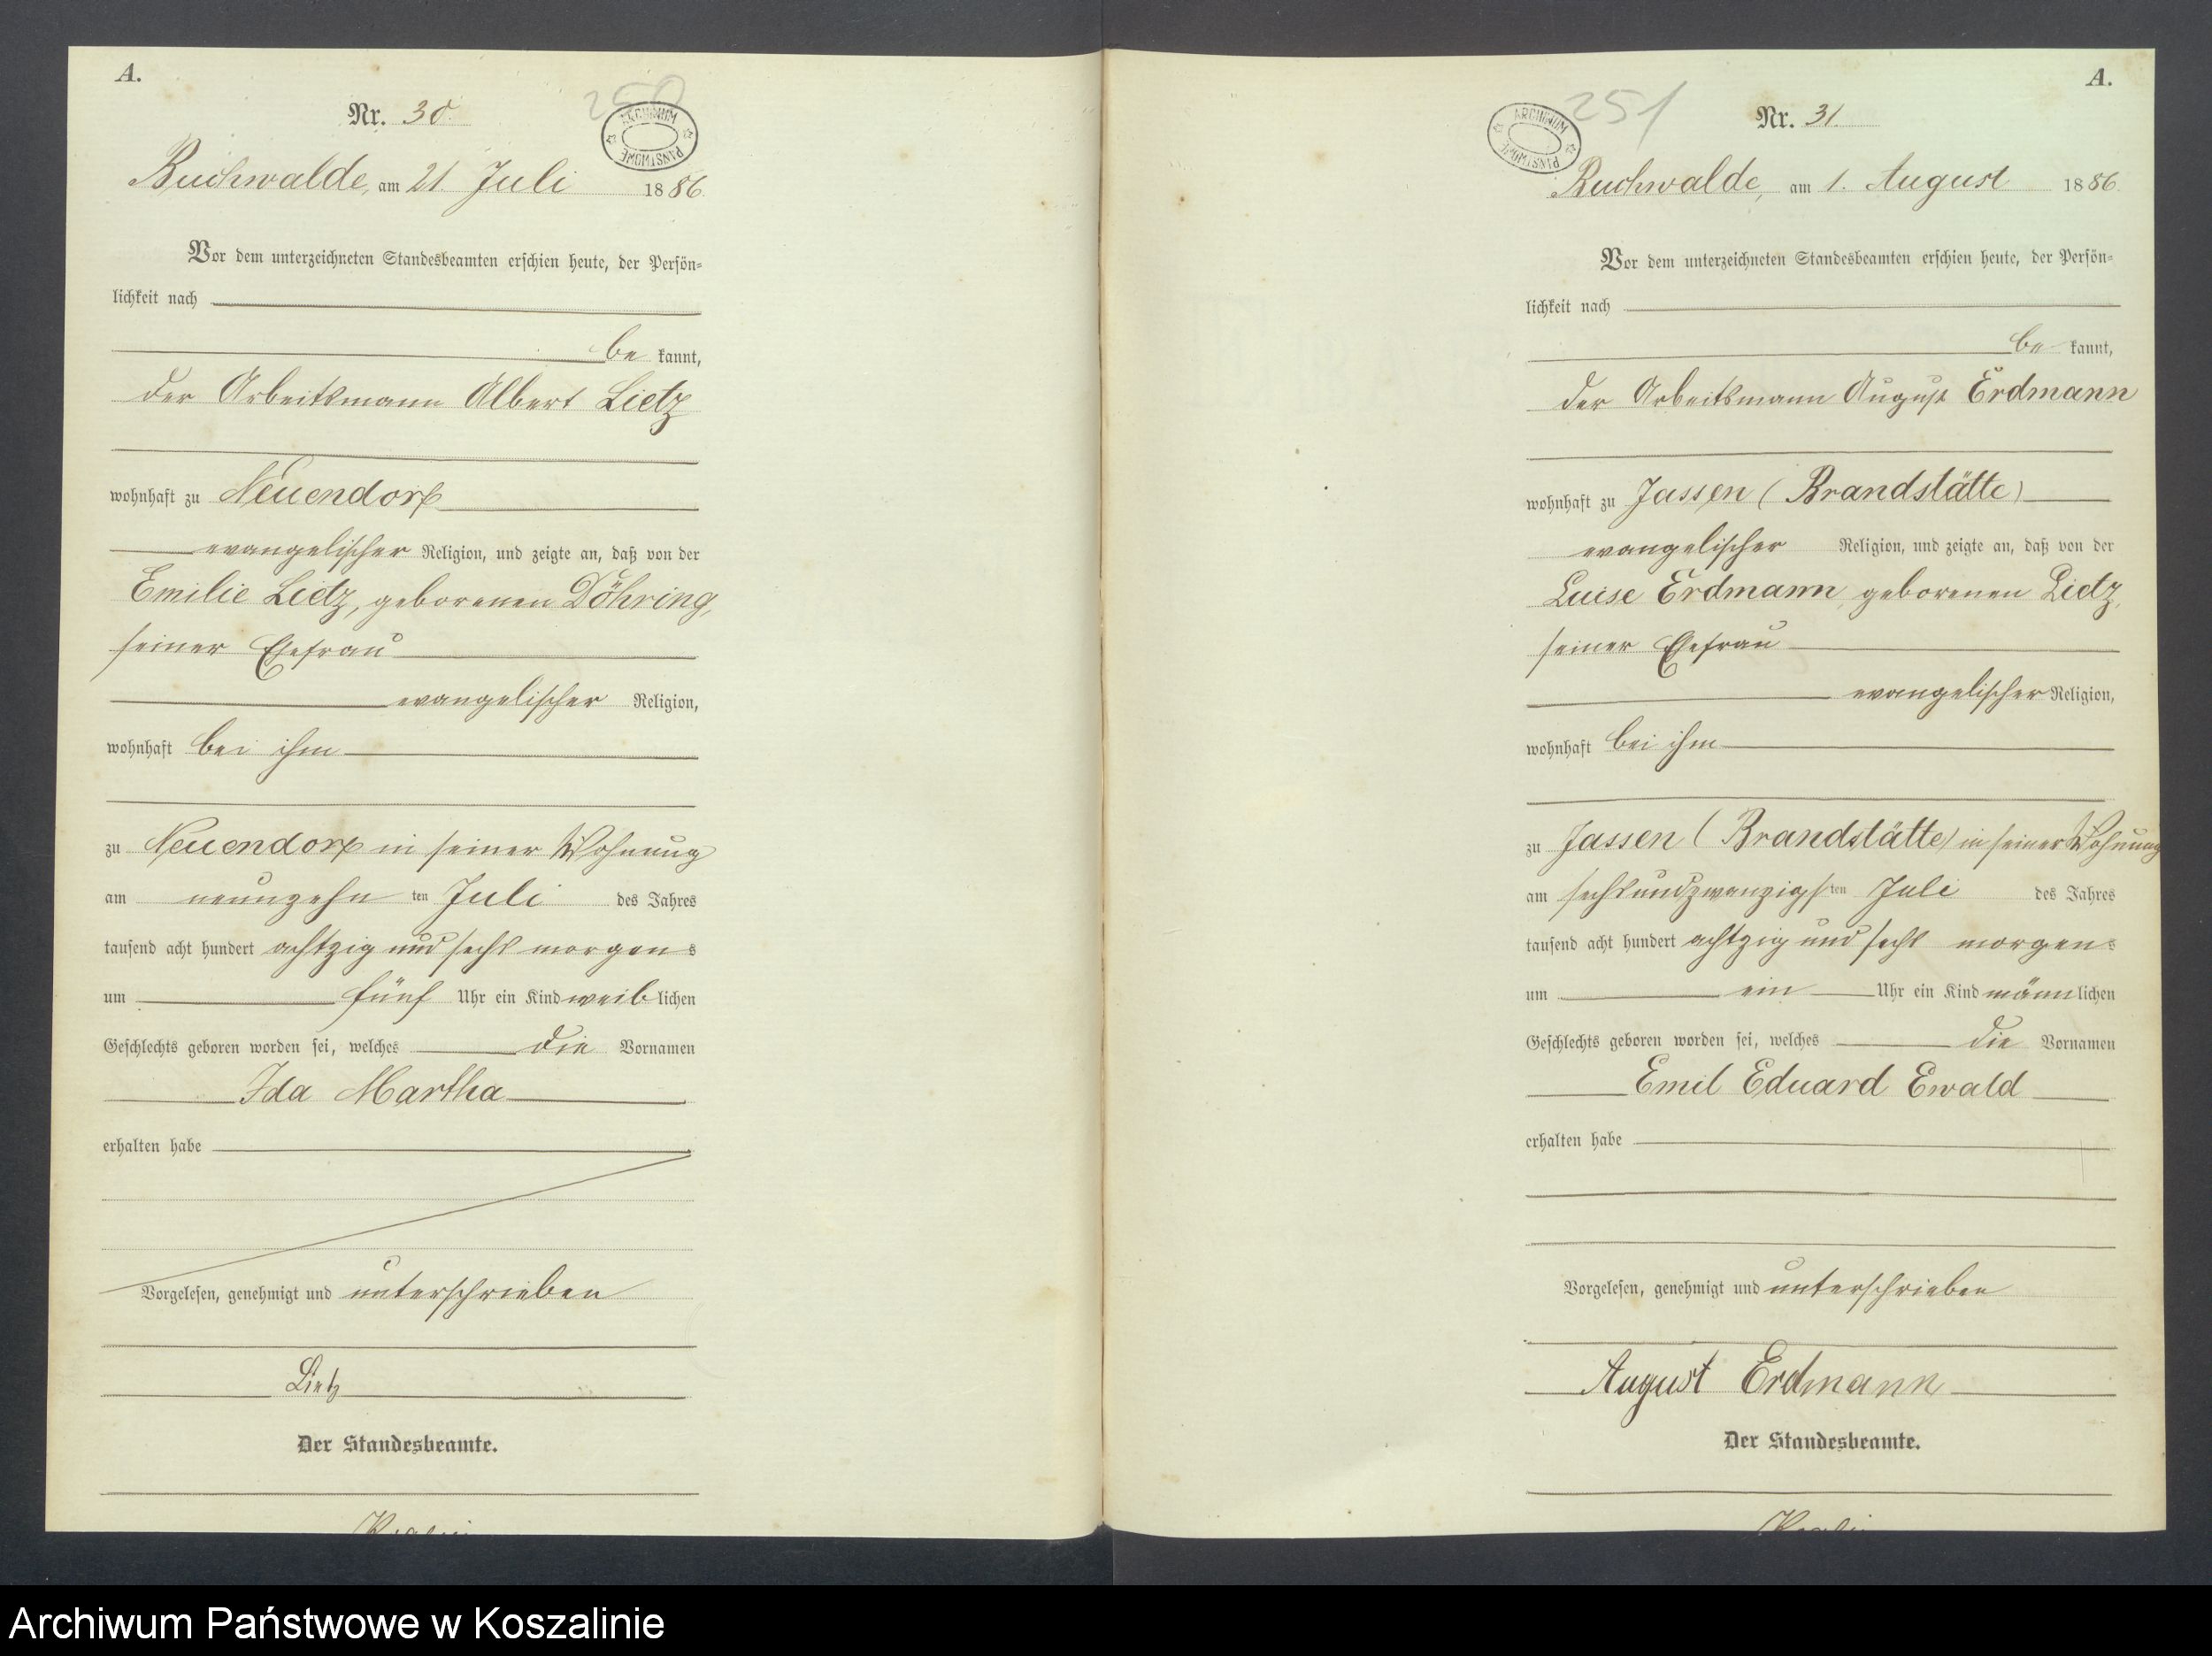 A.
Nr. 30.
250
ARCHIWUM PAŃSTWOWE
Buchwalde, am 21. Juli 1886.
Vor dem unterzeichneten Standesbeamten erschien heute, der Persön-
lichkeit nach
be kannt,
der Arbeitsmann Albert Lietz
wohnhaft zu Neuendorf
evangelischer Religion, und zeigte an, daß von der
Emilie Lietz, geborenen Döhring,
seiner Ehefrau
evangelischer Religion,
wohnhaft bei ihm
zu Neuendorf in seiner Wohnung
am neunzehn ten Juli des Jahres
tausend acht hundert achtzig und sechs morgens
um fünf Uhr ein Kind weiblichen
Geschlechts geboren worden sei, welches die Vornamen
Ida Martha
erhalten habe
Vorgelesen, genehmigt und unterschrieben
Lietz
Der Standesbeamte.
A.
Nr. 31.
251
ARCHIWUM PAŃSTWOWE
Buchwalde, am 1. August 1886.
Vor dem unterzeichneten Standesbeamten erschien heute, der Persön-
lichkeit nach
be kannt,
der Arbeitsmann August Erdmann
wohnhaft zu Jassen (Brandstätte)
evangelischer Religion, und zeigte an, daß von der
Luise Erdmann, geborenen Lietz,
seiner Ehefrau
evangelischer Religion,
wohnhaft bei ihm
zu Jassen (Brandstätte) in seiner Wohnung
am sechsundzwanzigsten Juli des Jahres
tausend acht hundert achtzig und sechs morgens
um ein Uhr ein Kind männlichen
Geschlechts geboren worden sei, welches die Vornamen
Emil Eduard Ewald
erhalten habe
Vorgelesen, genehmigt und unterschrieben
August Erdmann
Der Standesbeamte.
Archiwum Państwowe w Koszalinie